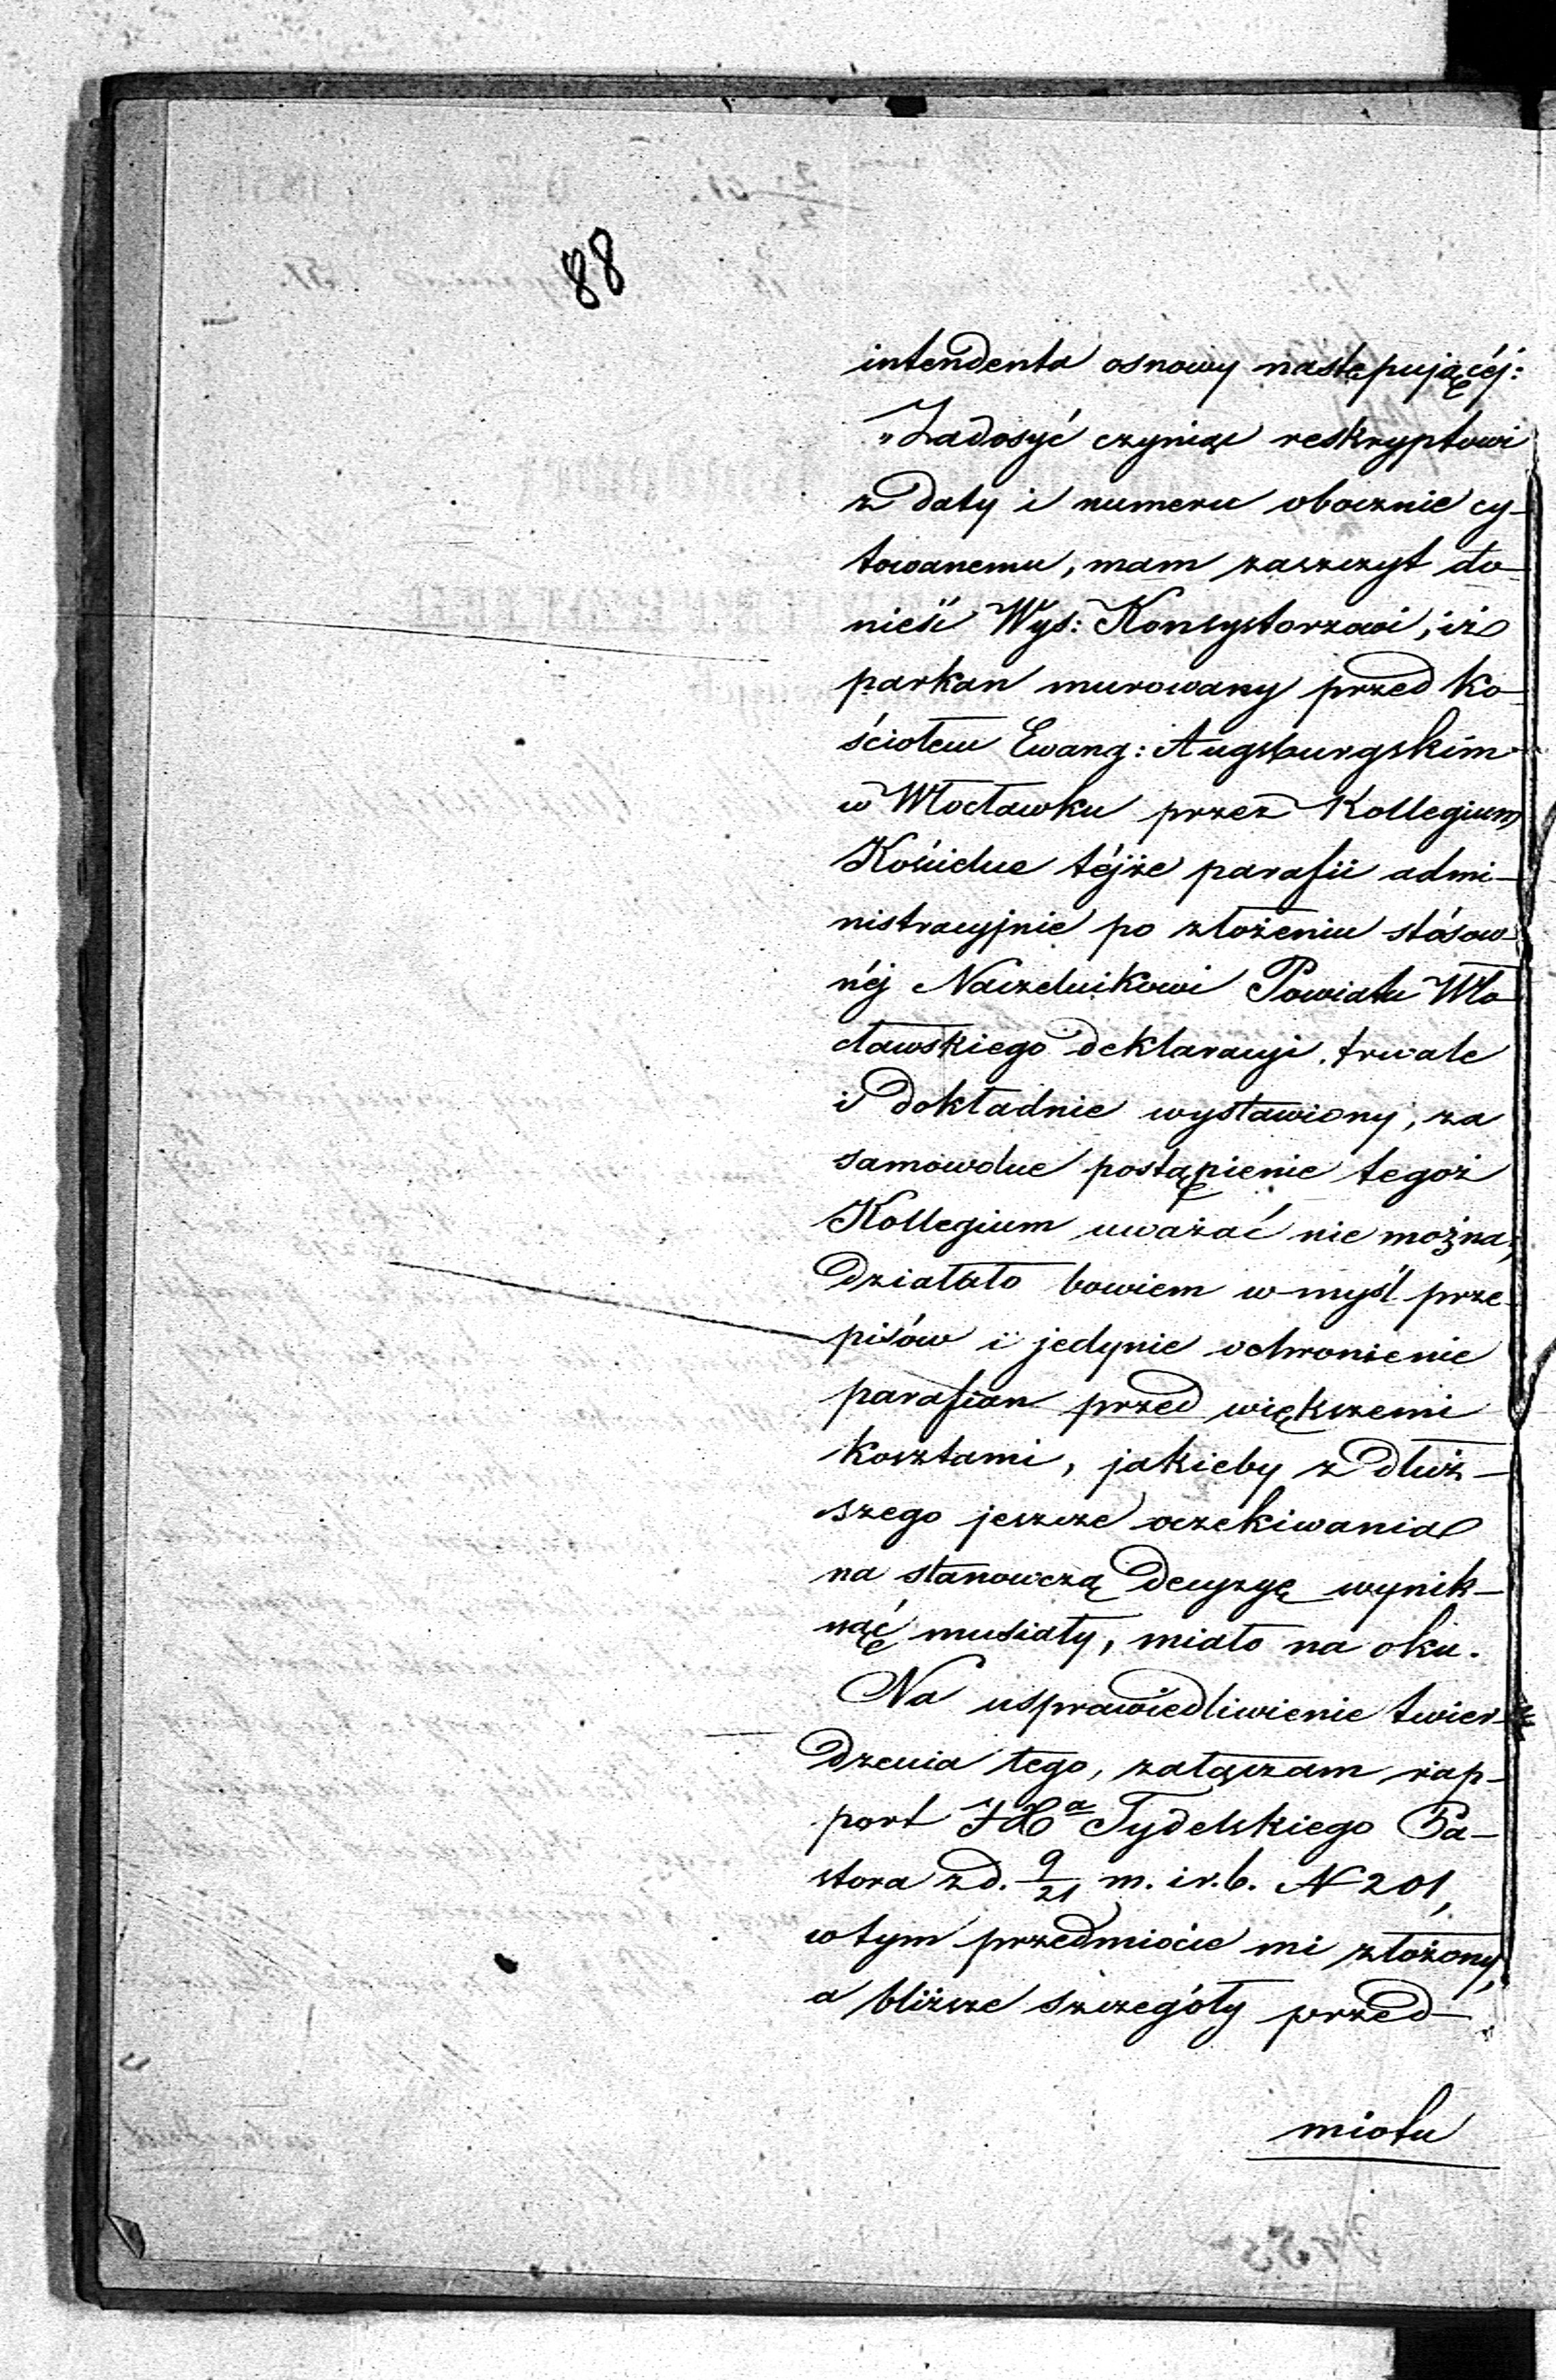 88
intendenta osnowy następującéj:
"Zadosyć czyniąc reskryptowi
z daty i numeru obocznie cy-
towanemu, mam zaszczyt do-
nieść Wys: Konsystorzowi, iż
parkan murowany przed Ko-
ściołem Ewang: Augsburgskim
w Włocławku przez Kollegium
Kościelne téjże parafii admi-
nistracyjnie po złożeniu stósow-
néj Naczelnikowi Powiatu Wło-
cławskiego deklaracyi, trwale
i dokładnie wystawiony, za
samowolne postąpienie tegoż
Kollegium uważać nie można,
działało bowiem w myśl prze-
pisów i jedynie ochronienie
parafian przed większemi
kosztami, jakieby z dłuż-
szego jeszcze oczekiwania
na stanowczą decyzyę wynik-
nąć musiały, miało na oku.
Na usprawiedliwienie twier-
dzenia tego, załączam rap-
port Tydelskiego Pa-
stora z d. 9/21 m. i r. b. N 201,
w tym przedmiocie mi złożony,
a bliższe szczegóły przed-
miotu